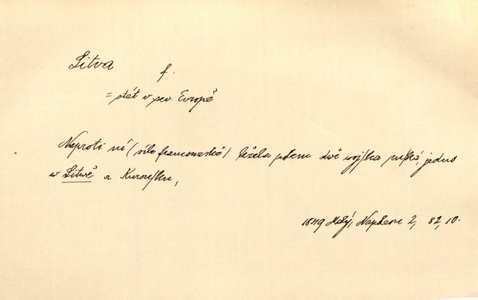 Litva f.
= stát v sev. Evropě
Naproti ní (síle francouzské) ležela potom dvě vojska ruská, jedno
v Litvě a Kuronsku,
Malý, Napoleon 2, 82, 10.